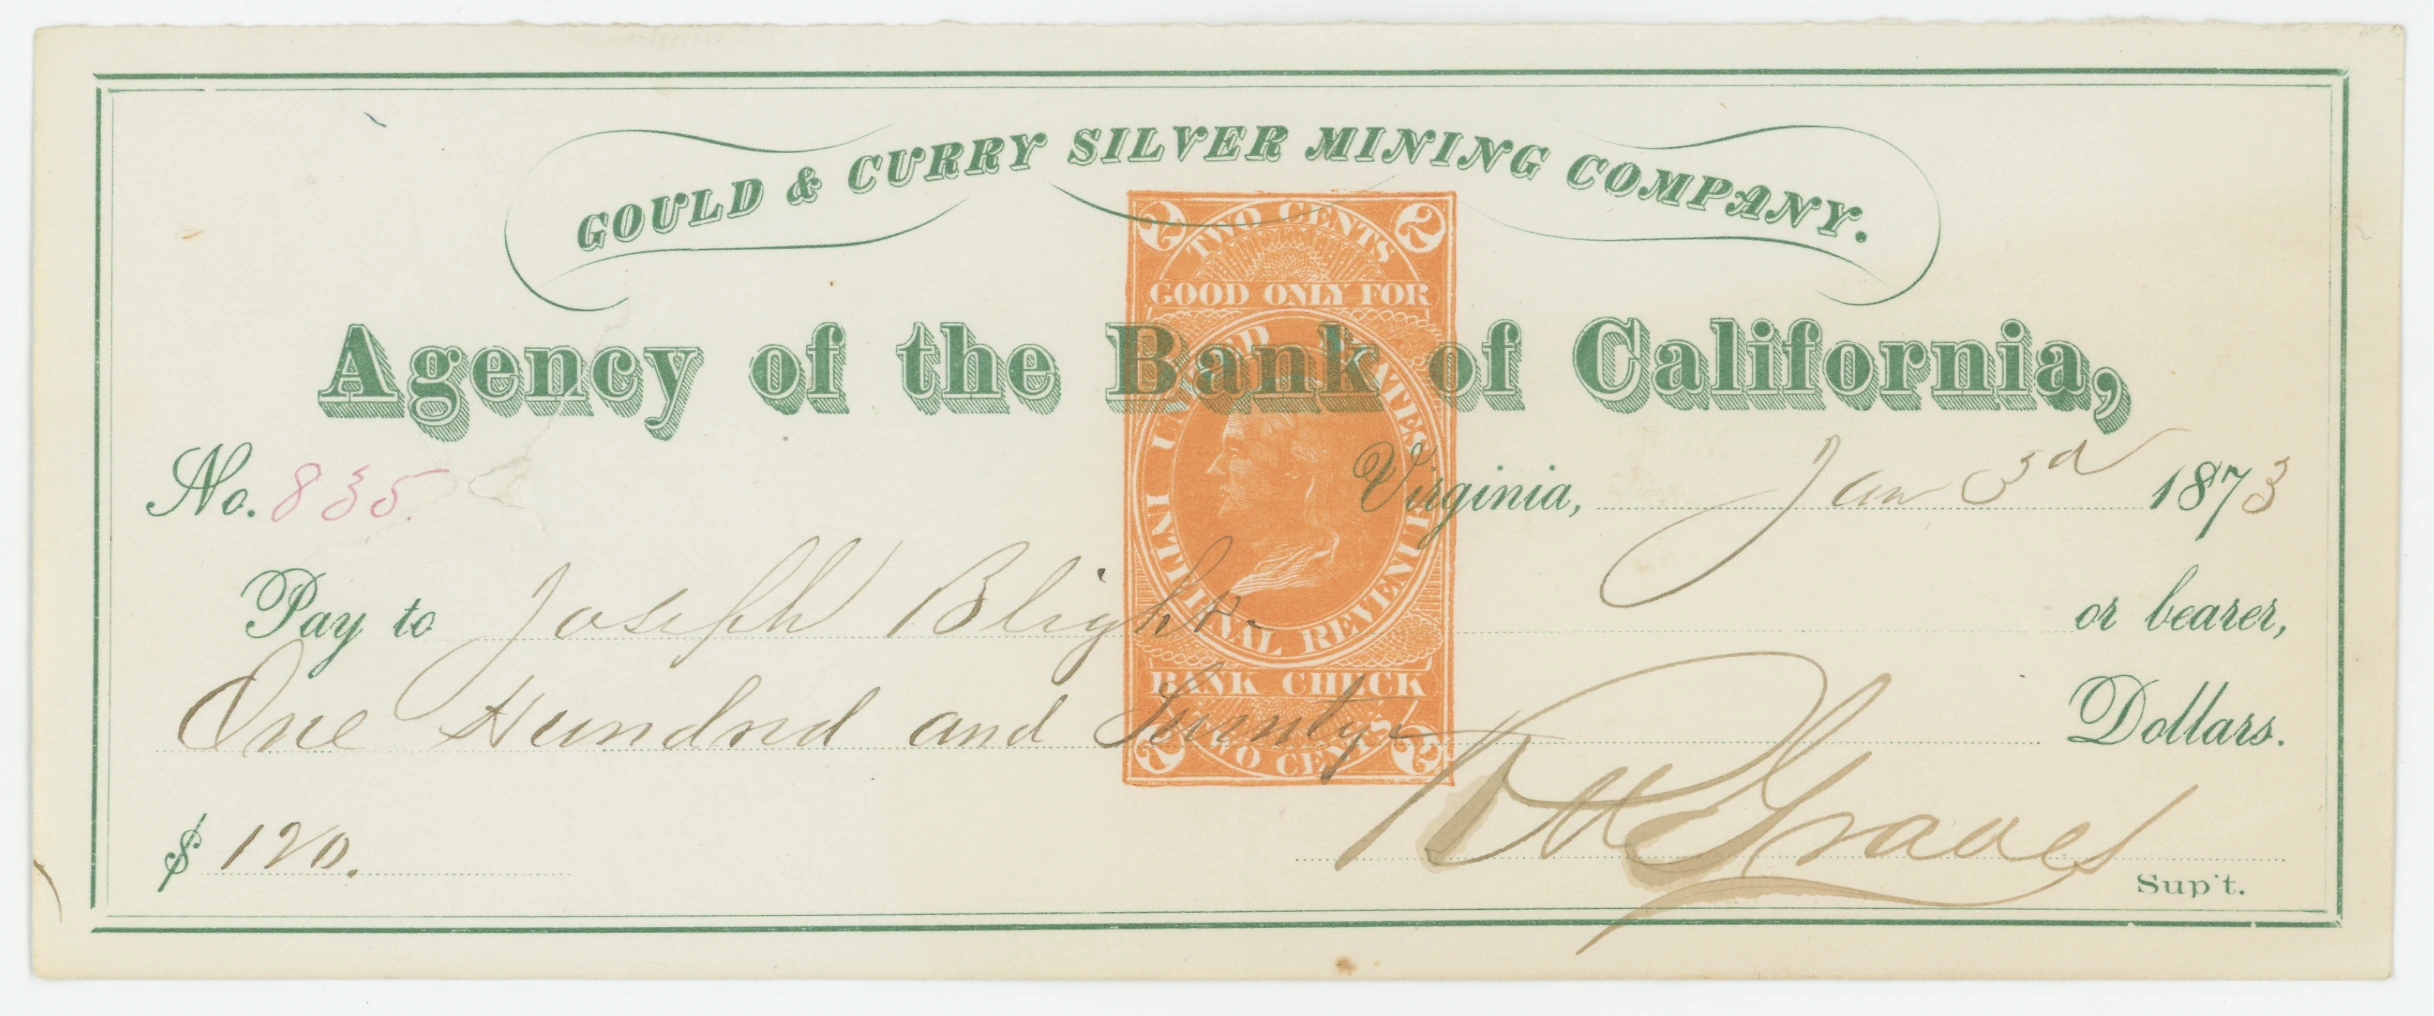 GOULD & CURRY SILVER MINING COMPANY.
Agency of the Bank of California,
No. 835. Virginia, Jan 3d 1873
Pay to Joseph Blight or bearer,
One Hundred and Twenty Dollars.
$ 120. Graves
Sup't.
2 TWO CENTS 2
GOOD ONLY FOR
UNITED STATES
INTERNAL REVENUE
BANK CHECK
2 TWO CENTS 2